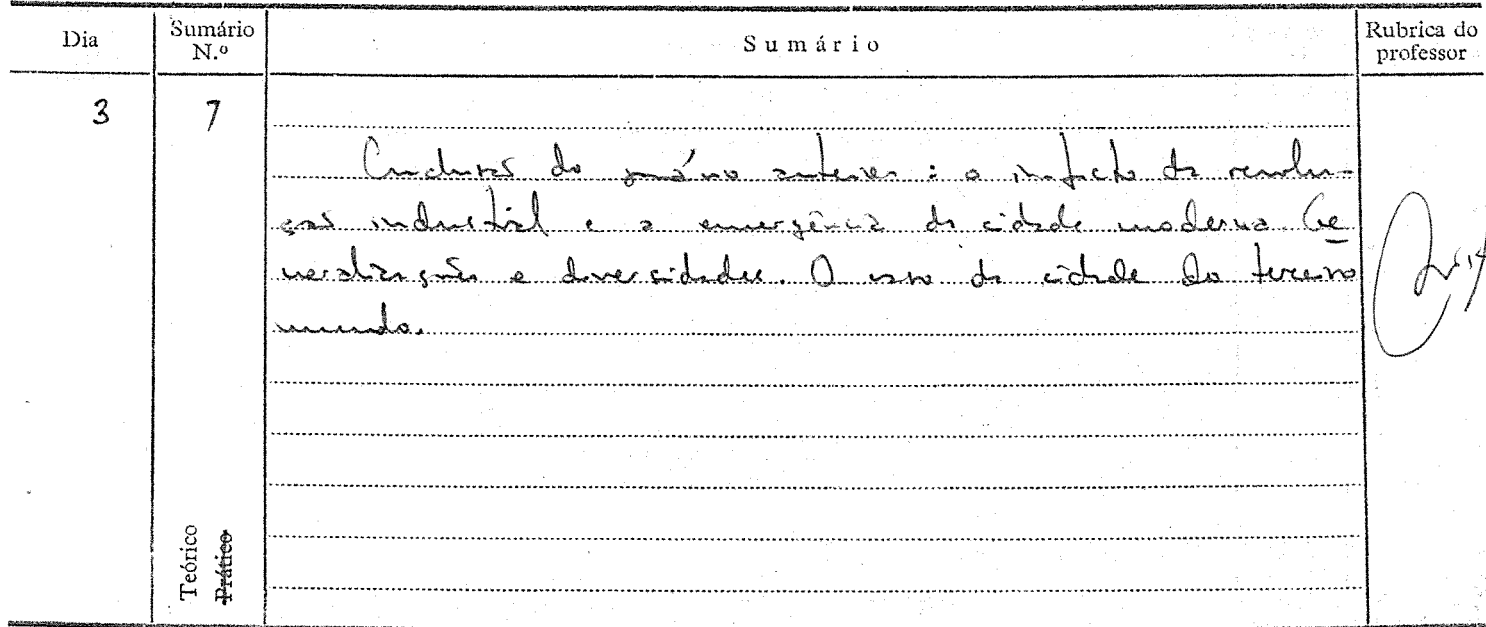 Dia
Sumário N.º
Sumário
Rubrica do professor
3
7
Conclusão do sumário anterior: o impacto da revolu-
ção industrial e a emergência da cidade moderna. Ge
neralizações e diversidades. O caso da cidade do terceiro
mundo.
Teórico
Prático